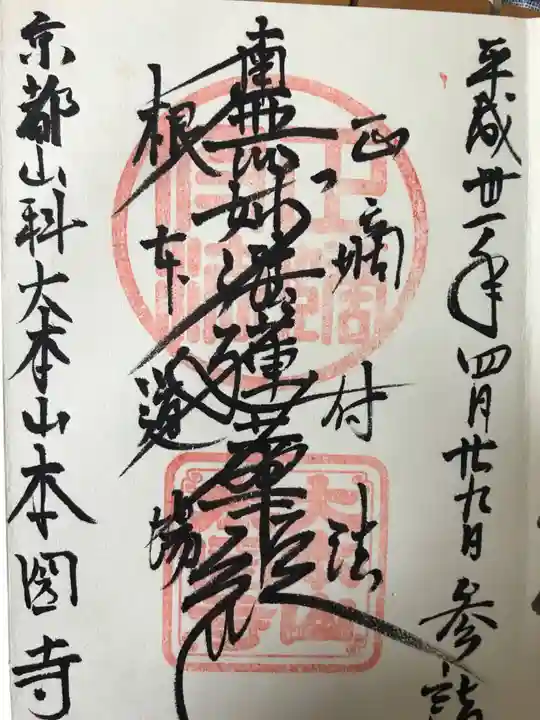 平成廿一年四月廿九日 参詣
正嫡付法
南無妙法蓮華経
根本道場
京都山科大本山本圀寺